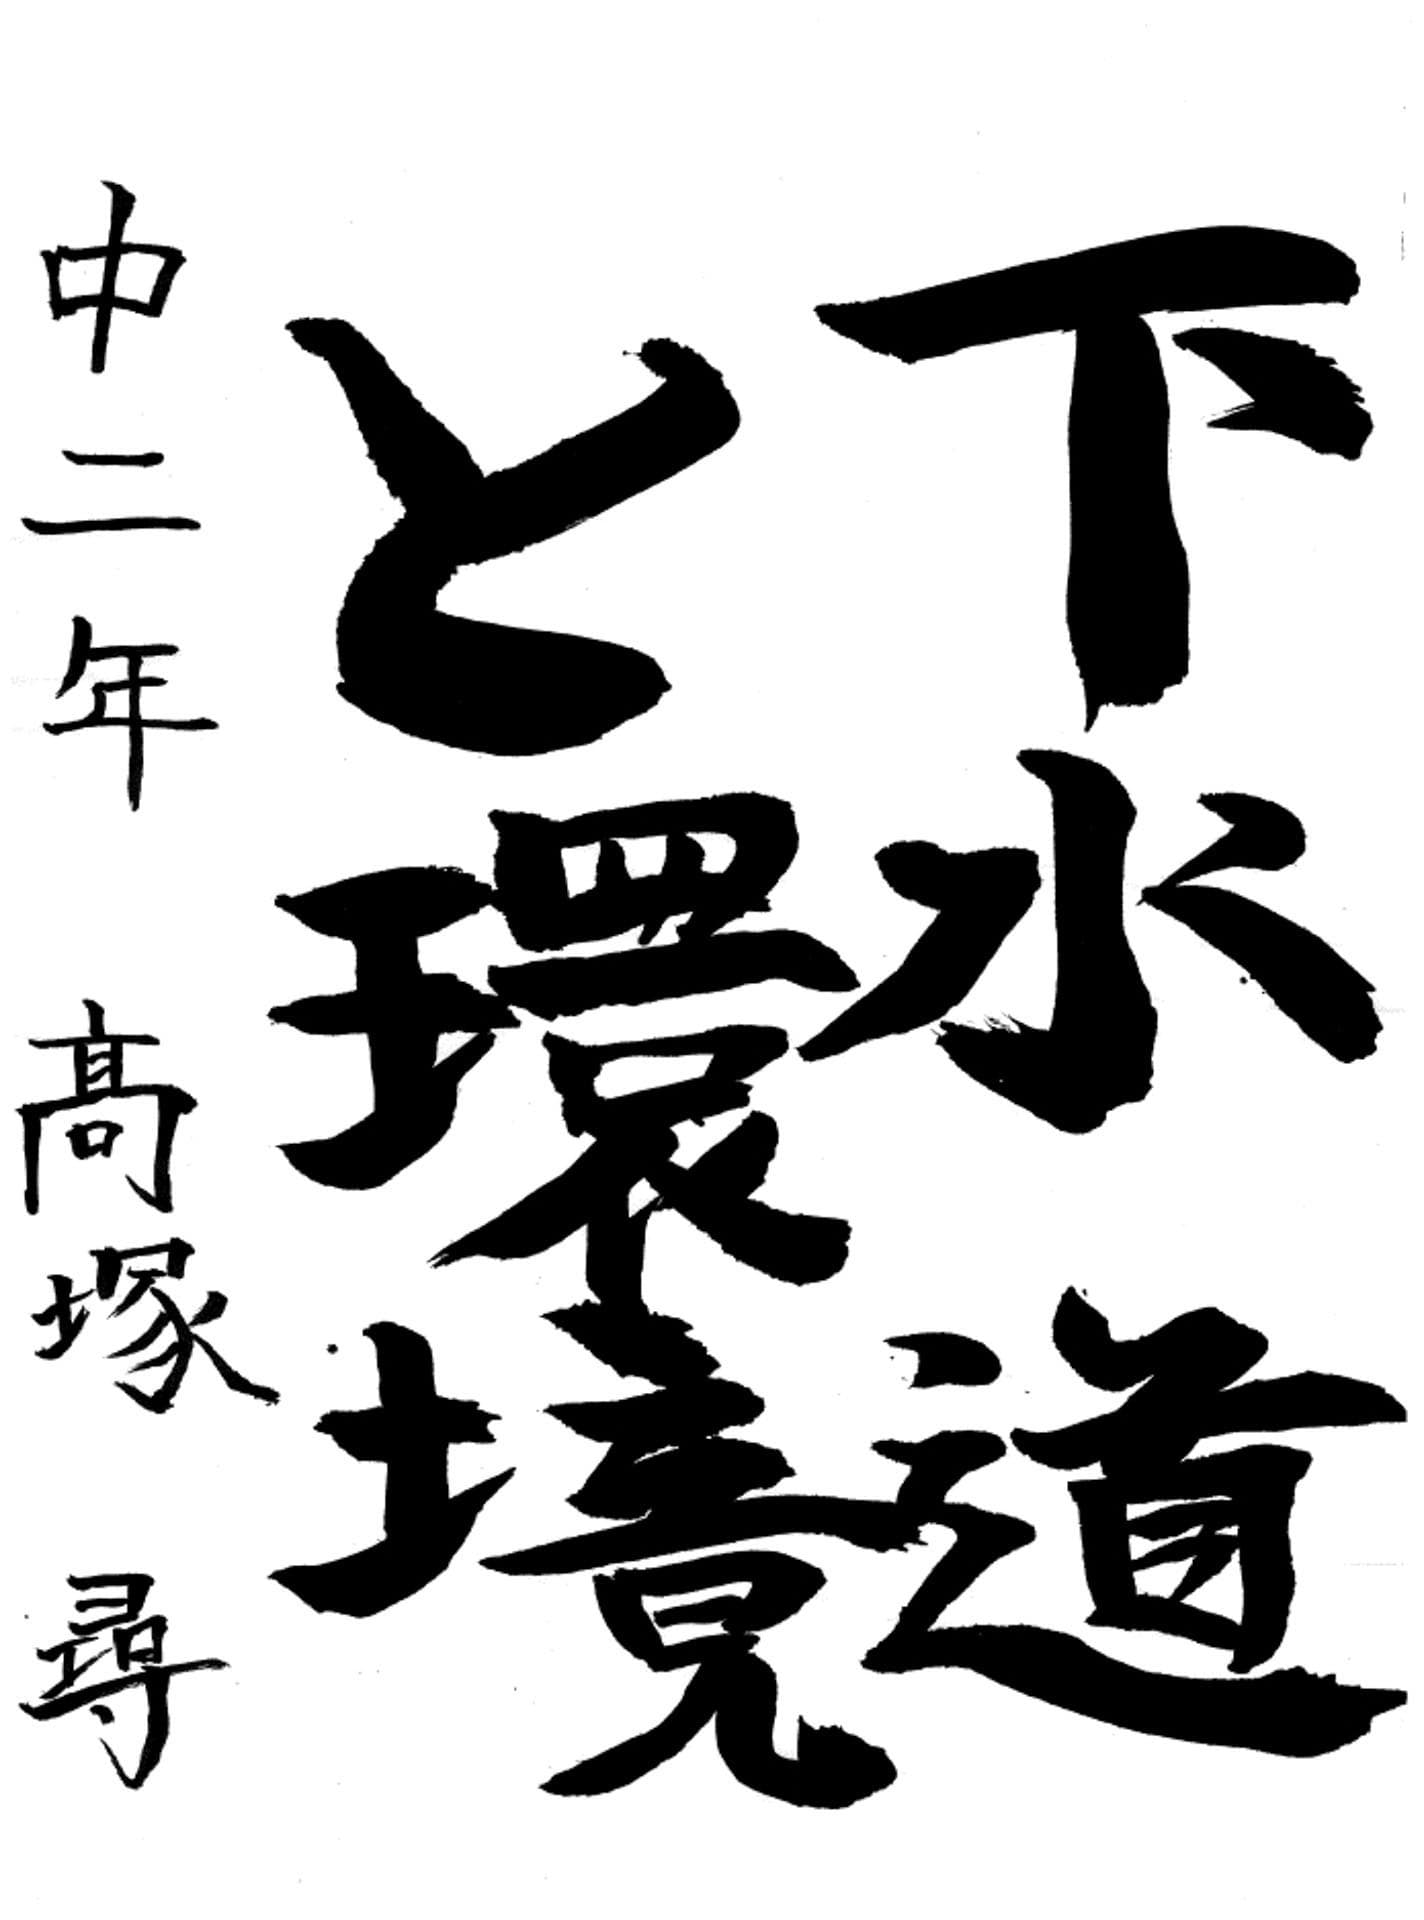 下水道
と環境
中二年 髙塚 尋